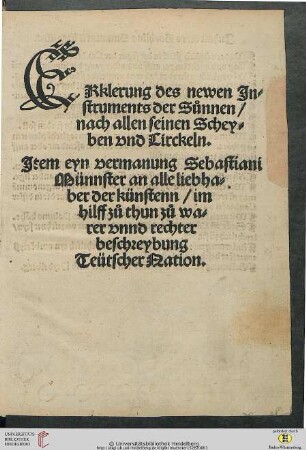 ERklerung des newen In-
struments der Sünnen/
nach allen seinen Schey-
ben vnd Circkeln.
Item eyn vermanung Sebastiani
Münnster an alle liebha-
ber der künstenn/im
hilff zů thun zů wa-
rer vnnd rechter
beschreybung
Teütscher Nation.
UNIVERSITÄTS-
BIBLIOTHEK
HEIDELBERG
© Universitätsbibliothek Heidelberg
gefördert durch
Baden-Württemberg